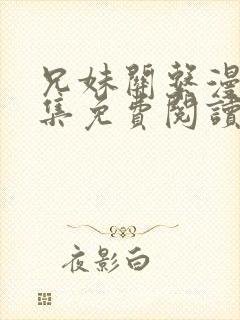 兄妹關係漫
集免費閱讀
夜影白